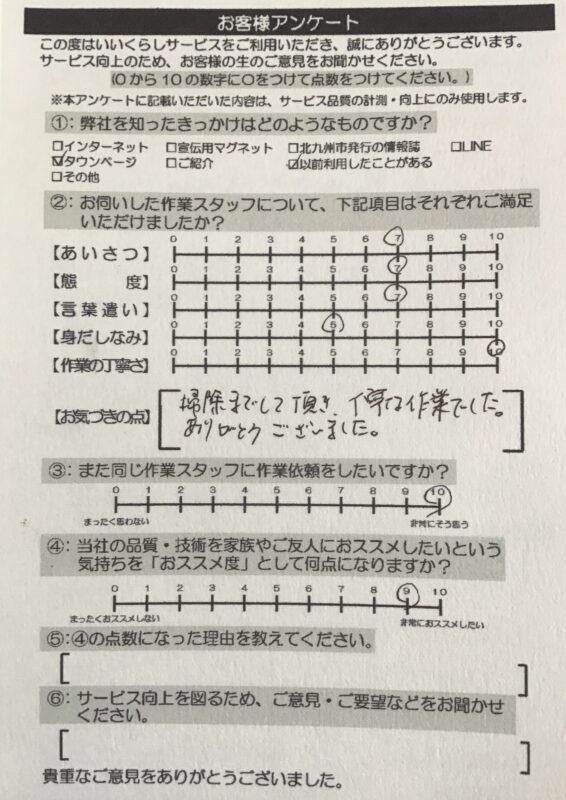 お客様アンケート
この度はいいくらしサービスをご利用いただき、誠にありがとうございます。
サービス向上のため、お客様の生のご意見をお聞かせください。
(0から10の数字に○をつけて点数をつけてください。)
※本アンケートに記載いただいた内容は、サービス品質の計測・向上にのみ使用します。
①：弊社を知ったきっかけはどのようなものですか？
□インターネット □宣伝用マグネット □北九州市発行の情報誌 □LINE
☑タウンページ □ご紹介 ☑以前利用したことがある
□その他
②：お伺いした作業スタッフについて、下記項目はそれぞれご満足
いただけましたか？
0 1 2 3 4 5 6 7 8 9 10
【あいさつ】
0 1 2 3 4 5 6 7 8 9 10
【態度】
0 1 2 3 4 5 6 7 8 9 10
【言葉遣い】
0 1 2 3 4 5 6 7 8 9 10
【身だしなみ】
0 1 2 3 4 5 6 7 8 9 10
【作業の丁寧さ】
掃除までして頂き、丁寧な作業でした。
【お気づきの点】
ありがとうございました。
③：また同じ作業スタッフに作業依頼をしたいですか？
0 1 2 3 4 5 6 7 8 9 10
まったく思わない 非常にそう思う
④：当社の品質・技術を家族やご友人におススメしたいという
気持ちを「おススメ度」として何点になりますか？
0 1 2 3 4 5 6 7 8 9 10
まったくおススメしない 非常におススメしたい
⑤：④の点数になった理由を教えてください。
⑥：サービス向上を図るため、ご意見・ご要望などをお聞かせ
ください。
貴重なご意見をありがとうございました。